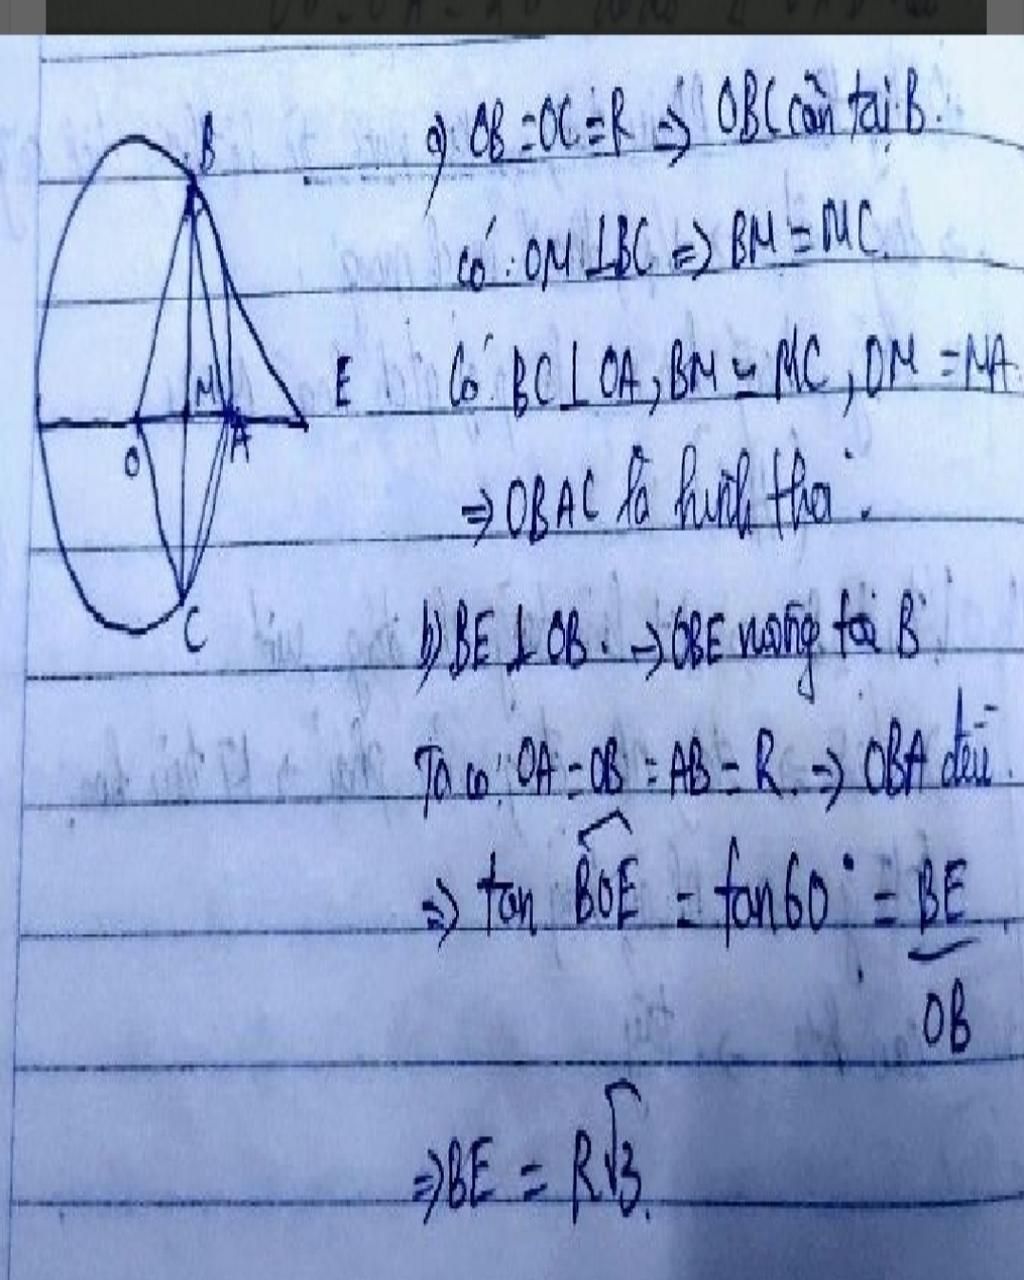 B
E
M
O
A
C
a) OB = OC = R => OBC cân tại B.
Có: OM ⊥ BC => BM = MC.
Có BC ⊥ OA, BM = MC, OM = MA
=> OBAC là hình thoi.
b) BE ⊥ OB. => OBE vuông tại B
Ta có: OA = OB = AB = R. => OBA đều
=> tan BOE = tan 60° = BE
OB
=> BE = R√3.